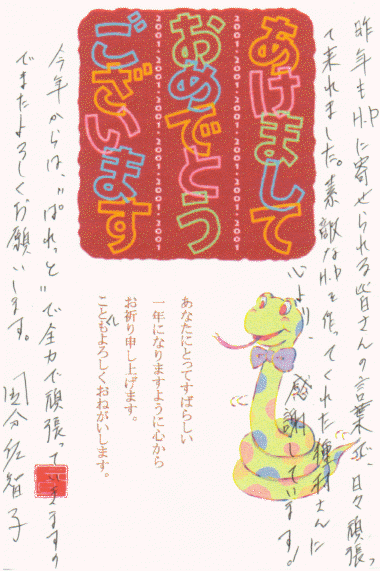 昨年もH.Pに寄せられる皆さんの言葉で、日々頑張っ
て来れました。素敵なH.Pを作ってくれた種村さんに
心より、感謝しています。!
あけまして
2001・2001・2001・2001・2001・2001・2001
おめでとう
2001・2001・2001・2001・2001・2001・2001
ございます
あなたにとってすばらしい
一年になりますように心から
お祈り申し上げます。
ことしもよろしくおねがいします。
今年からは、"ぱれっと"で全力で頑張っていきますの
でまたよろしくお願いします。
国分佐智子